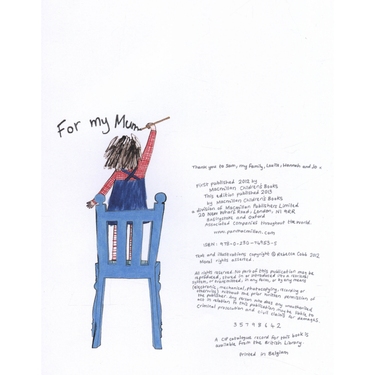 For my Mum
Thank you to Sam, my family, Hannah and Jo
First published 2012 by
Macmillan Children's Books
This edition published 2013
by Macmillan Children's Books
a division of Macmillan Publishers Limited
20 New Wharf Road, London, N1 9RR
Basingstoke and Oxford
Associated companies throughout the world.
www.panmacmillan.com
ISBN: 978-0-230-
Text and illustrations copyright © Rebecca Cobb 2012
Moral rights asserted.
All rights reserved. No part of this publication may be
reproduced, stored in or introduced into a retrieval
system, or transmitted, in any form, or by any means
(electronic, mechanical, photocopying, recording or
otherwise) without the prior written permission of
the publisher. Any person who does any unauthorized
act in relation to this publication may be liable to
criminal prosecution and civil claims for damages.
3 5 7 9 8 6 4 2
A CIP catalogue record for this book is
available from the British Library.
Printed in Belgium